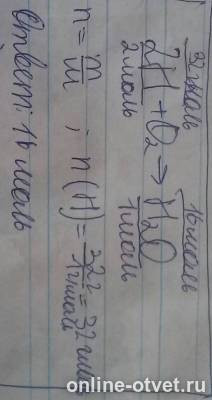 32 моль 16 моль
2H + O₂ → H₂O
2 моль 1 моль
n = m/M ; n(H) = 32г/1г/моль = 32 моль
Ответ: 16 моль
online-otvet.ru